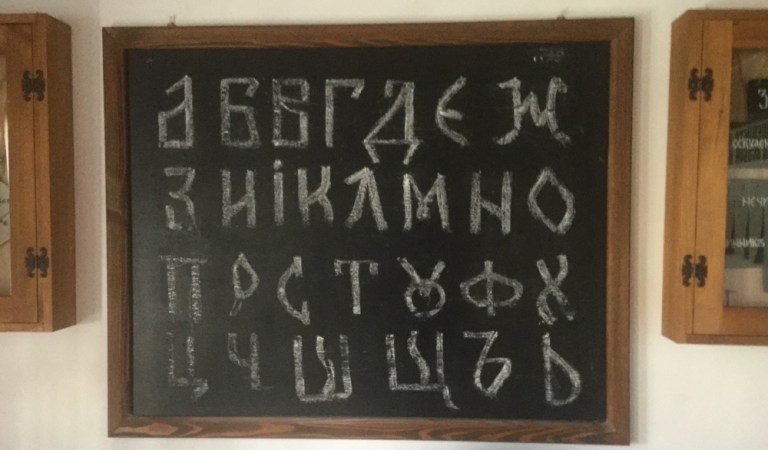 А Б В Г Д Е Ж
З И І К Л М Н О
П Р С Т Ꙋ Ф Х
Ц Ч Ш Щ Ъ Ь